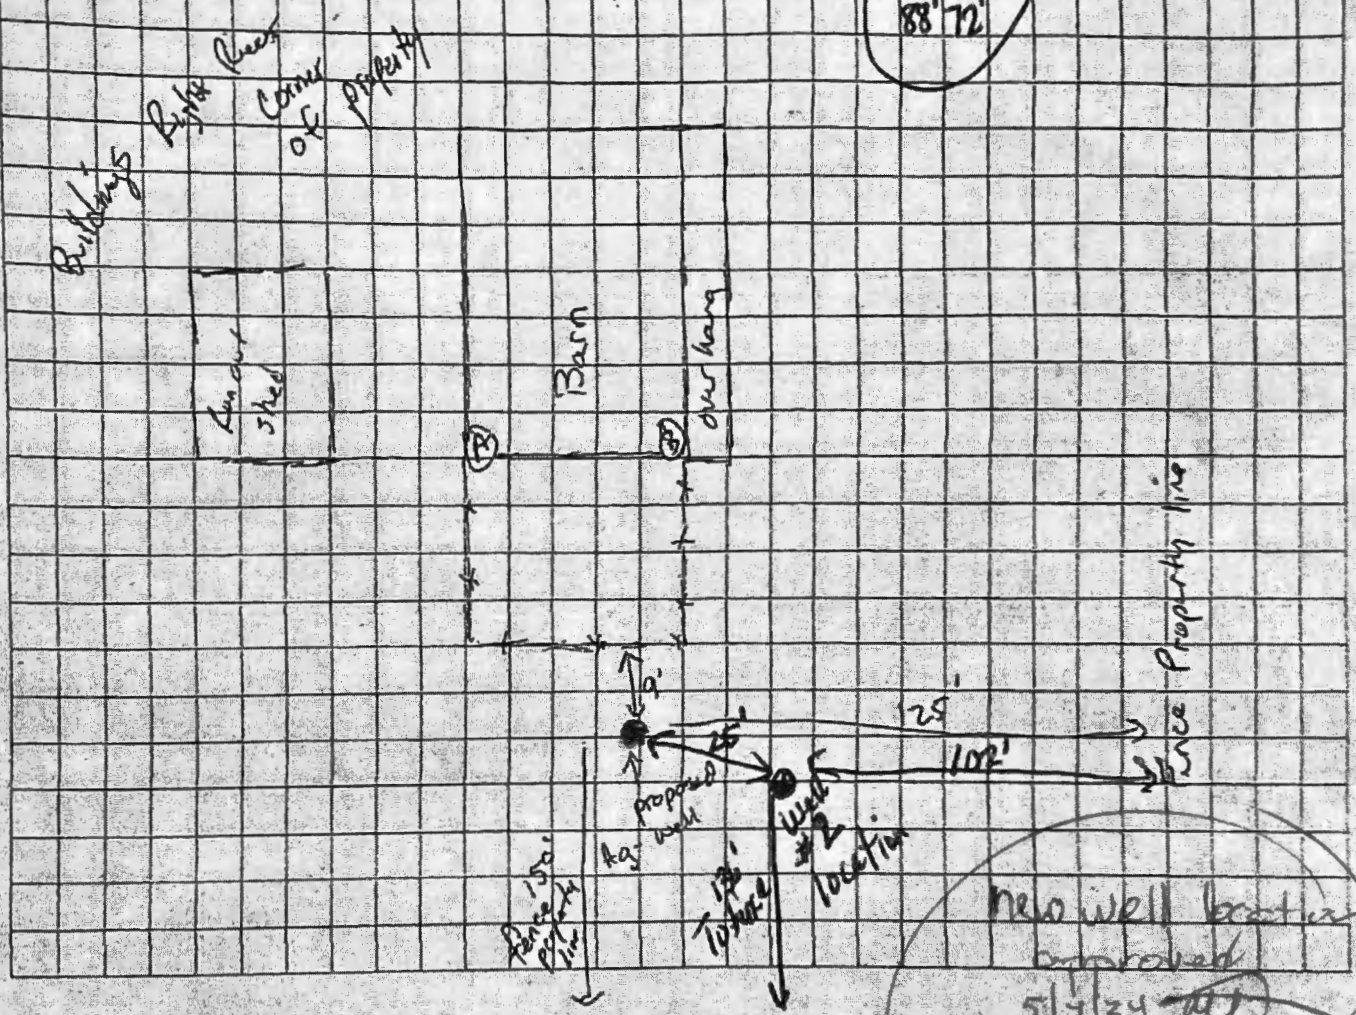 88' 72'
Buildings Right Rear
Corner
of
Property
Run out
shed
Barn
over hang
A
B
Fence Property line
9'
125'
25'
102'
proposed
Ag- well
Well
#2
location
136'
To fence
fence 150'
property
line
New well location
approved
5/4/24